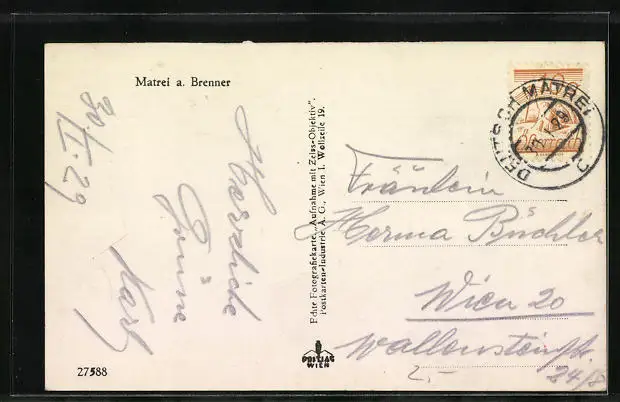 Matrei a. Brenner
30. II. 29
Herzliche
Grüße
Echte Fotografiekarte „Aufnahme mit Zeiss-Objektiv".
Postkarten-Industrie A. G., Wien I. Wollzeile 19.
DEUTSCH MATREI
Fräulein
Herma Büchler
Wien 20
Wallensteinstr.
24/8
2,-
POSTIAG
WIEN
27588